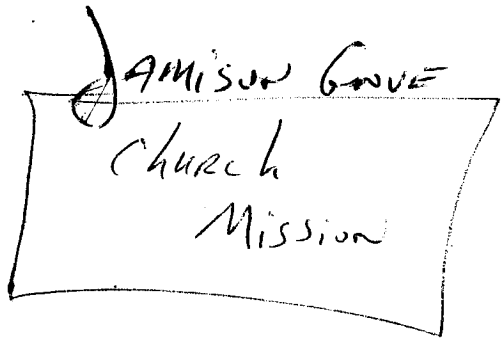 Jamison Grove
Church
Mission